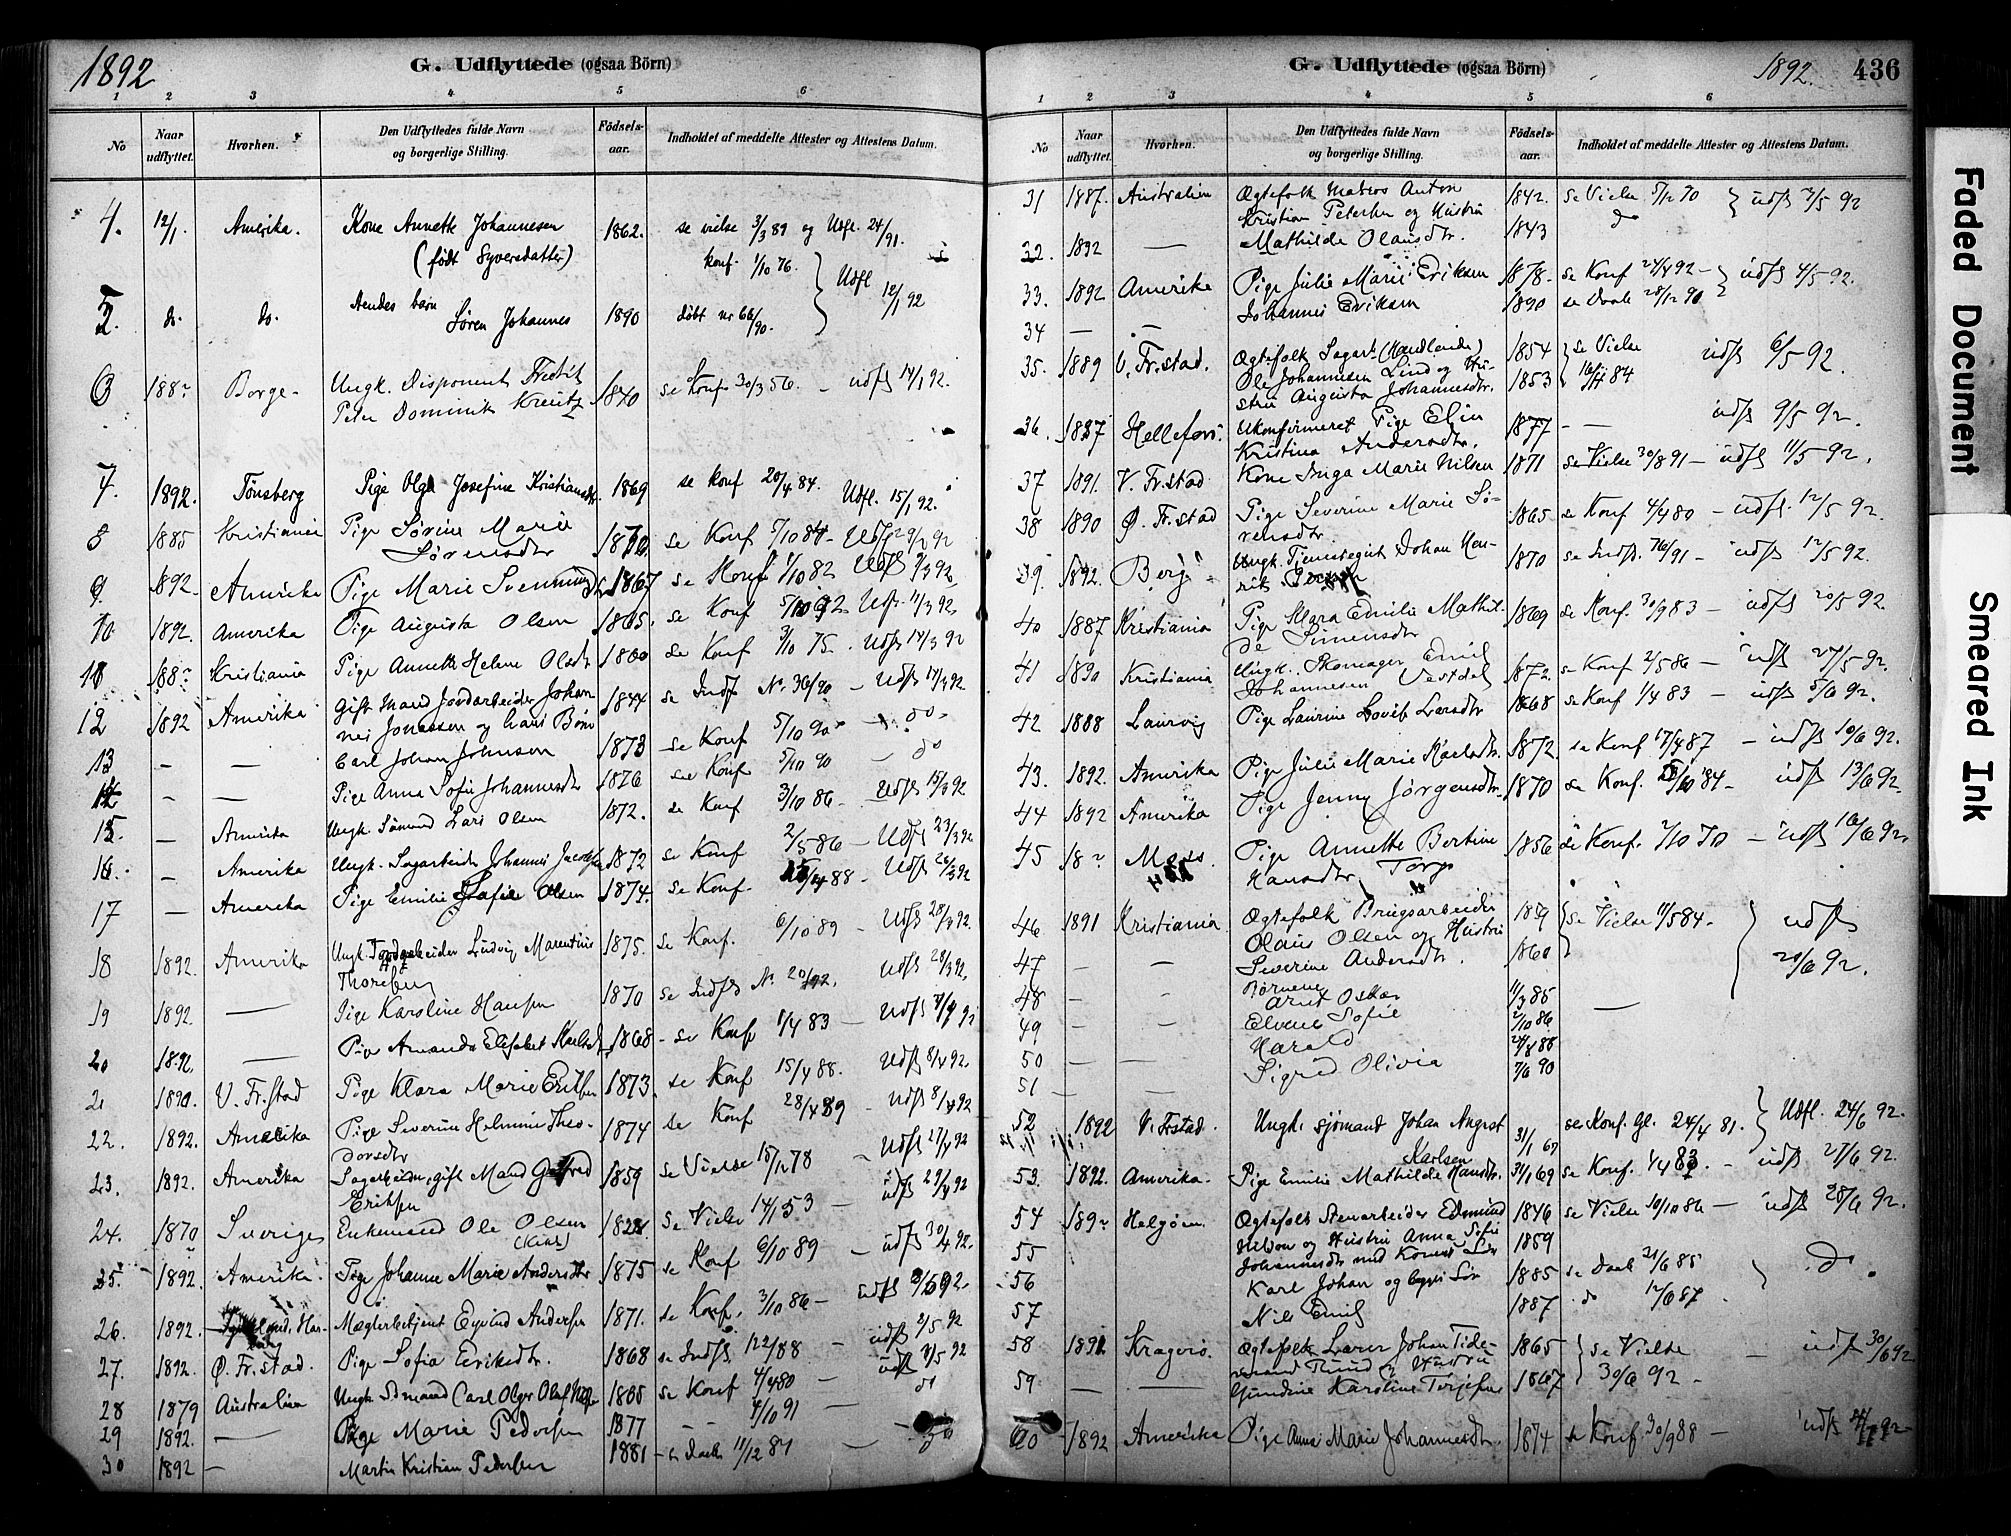 1892
G. Udflyttede (ogsaa Börn)
1 2 3 4 5 6
No Naar udflyttet. Hvorhen. Den Udflyttedes fulde Navn og borgerlige Stilling. Födsels-aar. Indholdet af meddelte Attester og Attestens Datum.
4. 12/1. Amerika. Kone Annette Johannesen 1862. se vielse 3/3 89 og Udfl. 24/91.
(født Syversdatter) konf. 1/10 76.
do. do. Hendes barn Udfl 12/1 92
Søren Johannes 1890 døbt nr 66/90.
6 188? Borge Ungk. Disponent
Peter Dominik Kreutz 1840 se Konf 30/3 56. – udfl 14/1 92.
7. 1892. Tønsberg Pige Olga Josefine 1869 se konf 20/4 84. Udfl. 15/1 92.
8 1885 Kristiania Pige Sørine Marie
Sørensdtr se Konf
9. 1892 Amerika Pige Marie 1867 se Konf 1/10 82 Udfl 9/3 92
10. 1892. Amerika Pige Augusta Olsen 1865. se Konf Udfl. 11/3 92
188? Kristiania Pige Annette Helene Olsdtr 1860 se Konf 3/10 75. Udfl 14/3 92
12 1892 Amerika Gift Mand Jordarbeider Johan-
nes Jonassen og hans Børn 1844 se Indfl No. 30/90 – Udfl 14/3 92
13 – – Carl Johan Johnsen 1873 se Konf 5/10 90 – do
– – Pige Anna Sofie Johannesdtr 1876 se Konf 5/10 90 – do
15. – Amerika Ungk. Sømand Lars Olsen 1872. se Konf 3/10 86 – Udfl 15/3 92
16. – Amerika Ungk. Sagarbeider Johannes 1872 se Konf 2/5 86 – Udfl 23/3 92
17 – Amerika Pige Emilie Olsen 1874. se Konf 88 – Udfl 26/3 92
18 1892. Amerika Ungk. Ludvig Marentius 1875. se Konf. 6/10 89 – Udfl 28/3 92.
19 1892. – Pige Karoline Hansen 1870 se Indfl No. 20/92. Udfl 28/3 92.
20 1892. – Pige Amanda Elisabet 1868 – se Konf 1/4 83 – Udfl
21 1890. V. Fr.stad Pige Klara Marie Eriksen 1873. se Konf 15/4 88. – Udfl 8/4 92.
22. 1892. Amerika Pige Severine Helmine Theo-
dorsdtr 1874 se Konf 28/4 89 – Udfl 8/4 92
23. 1892. Amerika gift Mand
Eriksen 1859 se Vielse – Udfl 27/4 92
24. 1870 Sverige Enkemand Ole Olsen se Vielse 14/1 53 – udfl 29/4 92
25. 1892. Amerika. Pige Johanne Marie Andersdtr 1875 se Konf 6/10 89 – udfl 30/4 92.
26. 1892. Eyvind Andersen 1871. se Konf. 3/10 86 – udfl 2/5 92
27. 1892. Ø. Fr.stad. Pige Sofia Eriksdtr. 1868 se Indfl 122/88 – udfl 2/5 92
28 1879 Australien Ungk. Sømand Carl Olger Olaf se Konf 4/4 80 – udfl 3/5 92
29 1892. – Pige Marie Pedersen 1877 – – 4/10 91 – do
30 1892 – Martin Kristian Pedersen 1881 – se Daab 11/12 81 – do
G. Udflyttede (ogsaa Börn)
1892. 436
1 2 3 4 5 6
No Naar udflyttet. Hvorhen. Den Udflyttedes fulde Navn og borgerlige Stilling. Födsels-aar. Indholdet af meddelte Attester og Attestens Datum.
31 1887. Australien Ægtefolk Matros Anton 1842. se Vielse 5/12 70 udfl 3/5 92
Kristian Petersen og Hustru do
32. 1892 – Mathilde Olausdtr. 1843
33. 1892 Amerika Pige Julie Marie Eriksen 1878 – se Konf 24/4 92 – udfl 4/5 92.
34 – – Johannes Eriksen 1890 se Daab 28/12 90
35. 1889 V. Fr.stad. Ægtefolk Sagarb. (Handlende) 1854 se Vielse udfl 6/5 92.
Ole Johannesen Lind og Hu-
stru Augusta Johannesdtr. 1853 84
36. 1887 Hellefors. Ukonfirmeret Pige Elin 1877 – – udfl 9/5 92.
Kristina Andersdtr.
37 1891. V. Fr.stad Kone Inga Marie Nilsen 1871 se Vielse 30/8 91 – udfl 11/5 92.
38 1890 Ø. Fr.stad Pige Severine Marie Sø-
rensdtr 1865 se Konf 4/4 80 – udfl. 12/5 92.
39. 1892. Berg Ungk. Johan Hen-
rik 1870 se Indfl. 76/91 – udfl 12/5 92.
40 1887 Kristiania Pige Klara Emilie Mathil-
de Simensdtr 1869 se Konf. 30/9 83 – udfl 20/5 92.
41 1890 Kristiania Ungk. Skomager Emil
Johannesen Vestdal 1872. se Konf 2/5 86 – udfl 27/5 92.
42 1888 Laurvig Pige Laurine Lovise Larsdtr 1868 se Konf 1/4 83 – udfl 5/6 92.
43. 1892. Amerika Pige Julie Marie Karlsdtr. 1872. se Konf 17/4 87 – udfl 10/6 92.
44 1892 Amerika Pige Jenny Jørgensdtr. 1870 se Konf. 84 – udfl 13/6 92.
45 18? Moss Pige Annette Bertine
Hansdtr Torp 1856 se Konf. 2/10 70 – udfl 16/6 92
46 1891 Kristiania Ægtefolk Brugsarbeider 1859 se Vielse 11/5 84. – udfl
Olaus Olsen og Hustru
47 – – Severine Andersdtr. 1860 20/6 92.
Børnene
48 – – Arnt Oskar 11/3 85 –
49 – – Elvine Sofie 2/10 86
50 – – Harald 88
51 – – Sigrid Olivia 7/6 90
52 1892 V. Frstad. Ungk. sjømand Johan August
Karlsen 31/1 67 se Konf. Gl. 24/4 81. Udfl. 24/6 92.
53. 1892. Amerika. Pige Emilie Mathilde Hansdtr. 31/1 69 se Konf. 1/4 83. – udfl 27/6 92.
54 189? Helgøen. Ægtefolk Stenarbeider Edmund 1846 se Vielse 10/10 86 – udfl 28/6 92.
55 Nilson og Hustru Anna Sofie 1859
Johannesdtr med Konens Søn
56 Karl Johan og begges Søn 1885 se Daab 21/6 85 do
57 Nils Emil 1887 do 12/6 87
58 1892 Kragerø. Ægtefolk Lærer Johan Tide-
mand og Hustru 1865 se Vielse – udfl 30/6 92
59 – – Gundine Karoline Terjesen 1867 30/6 92 –
60 – 1892 Amerika Pige Anna Marie Johannesdtr. 1874 se Konf. 30/9 88 – udfl 92
Faded Document
Smeared Ink